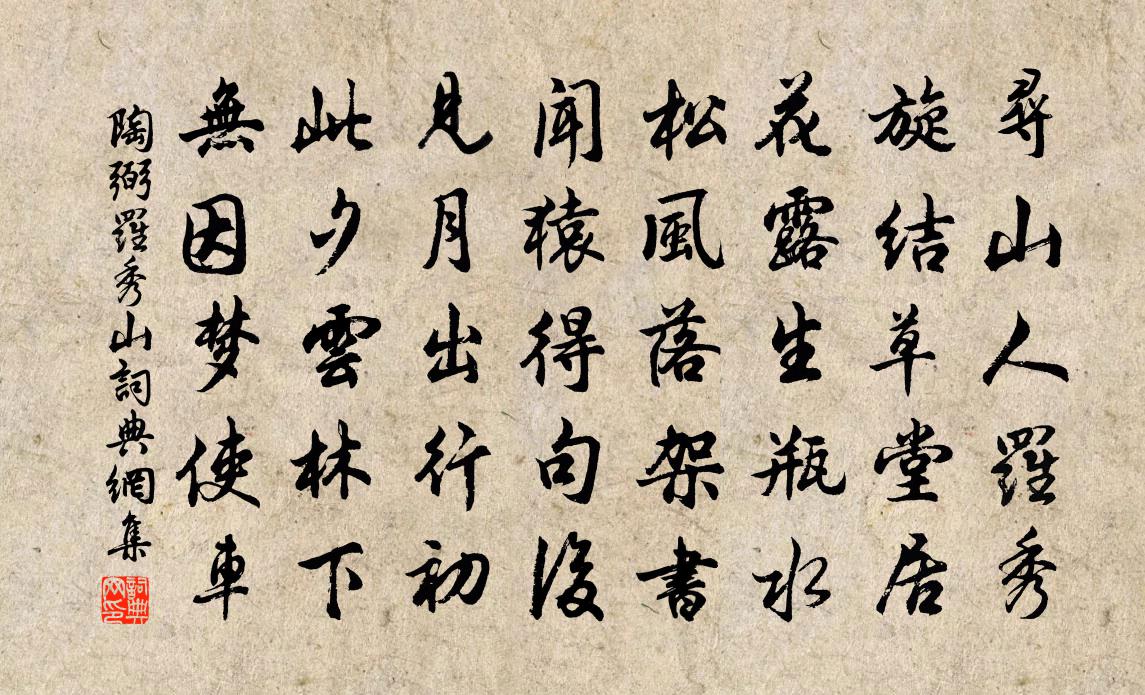 尋山人羅秀
旋結草堂居
花露生瓶水
松風落架書
聞猿得句後
見月出行初
此夕雲林下
無因梦使車
陶弼羅秀山詞典網集
詞典網印